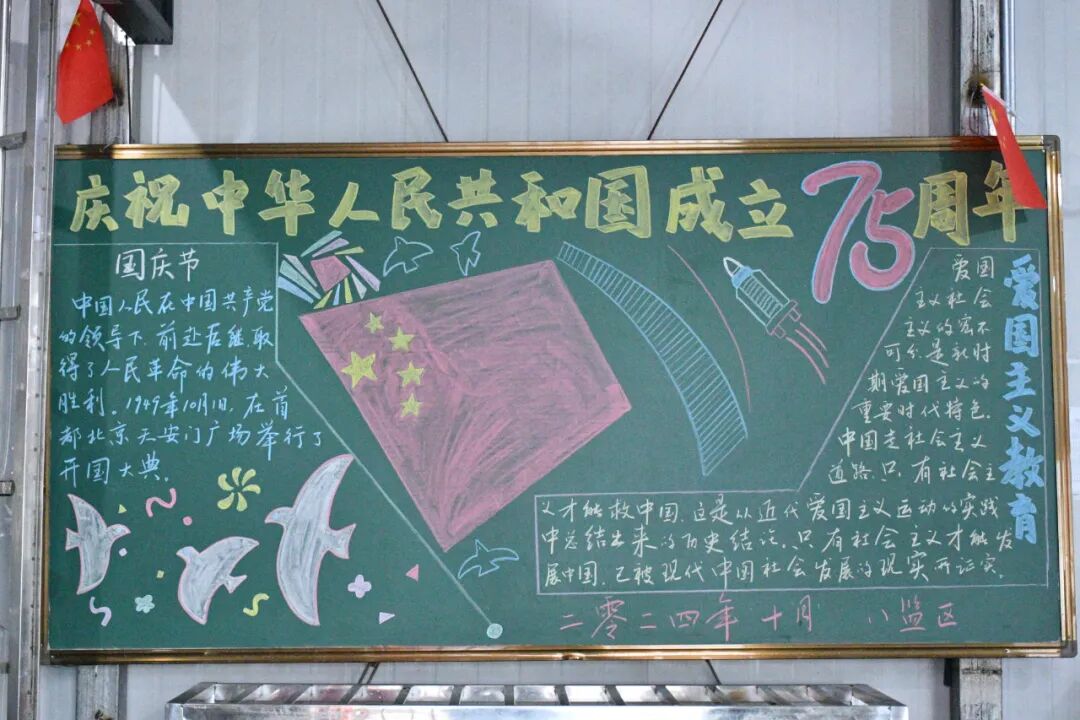 庆祝中华人民共和国成立75周年
国庆节
中国人民在中国共产党
的领导下,前赴后继取
得了人民革命的伟大
胜利。1949年10月1日,在首
都北京天安门广场举行了
开国大典。
爱国主义教育
爱国
主义社会
主义的密不
可分是新时
期爱国主义的
重要时代特色。
中国走社会主义
道路,只有社会主
义才能救中国,这是从近代爱国主义运动的实践
中总结出来的历史结论。只有社会主义才能发
展中国,已被现代中国社会发展的现实所证实。
二零二四年十月 八监区